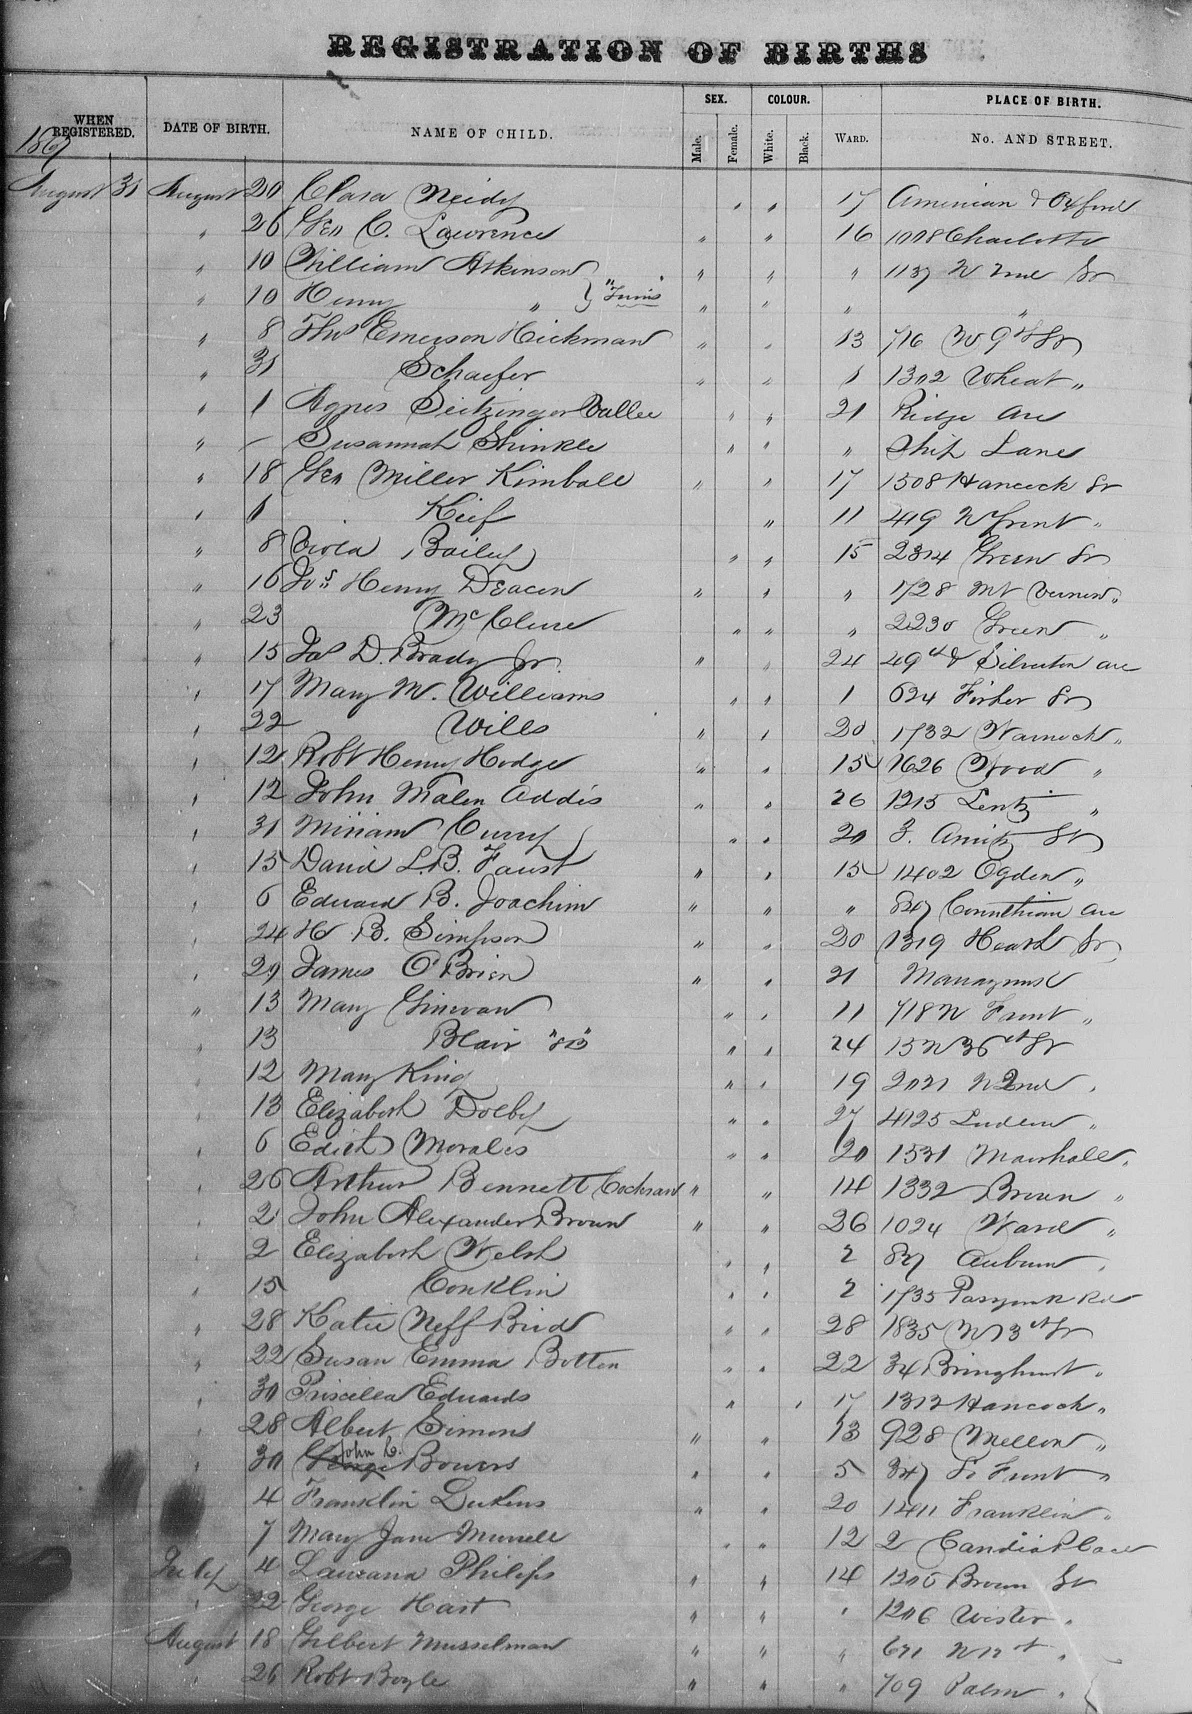 REGISTRATION OF BIRTHS
WHEN REGISTERED. DATE OF BIRTH. NAME OF CHILD. SEX. Male. Female. COLOUR. White. Black. WARD. PLACE OF BIRTH. No. AND STREET.
1867
August 31 August 20 Clara Neidy " " 17 Amerian & Oxford
" 26 Geo C. Lawrence " " 16 1008 Charlotte
" 10 William Atkinson " " " 1137 N 2nd St
" 10 Henry " } "Twins" " " " "
" 8 Thos Emerson Hickman " " 13 716 N 9th St
" 31 Schaefer " " 1 1302 Wheat "
" 1 Agnes Seitzinger Vallee " " 21 Ridge Ave
" – Susannah Shinkle " " " Ship Lane
" 18 Geo Miller Kimball " " 17 1508 Hancock St
" 1 Keif " 11 419 N Front "
" 8 Viola Bailey " " 15 2314 Green St
" 16 Jos Henry Deacon " " " 1728 Mt Vernon "
" 23 McClure " " " 2230 Green "
" 15 Jas D. Brady Jr " " 24 49th & Silverton Ave
" 17 Mary M. Williams " " 1 624 Fisher St
" 22 Wills " " 20 1732 Warnock "
" 12 Robt Henry Hodge " " 15 1626 Wood "
" 12 John Malen Addis " " 26 1215 Lentz "
" 31 Miriam Curry " " 20 St
" 15 David L.B. Faust " " 15 1402 Ogden "
" 6 Edward B. Joachim " " " 847 Corinthian Ave
" 24 H B. Simpson " " 20 1319 Heath St
" 29 James O'Brien " " 21 Manayunk
" 13 Mary Ginivan " " 11 718 N Front "
" 13 Blair " " 24 15 N 36th St
" 12 Mary King " " 19 2021 N 2nd "
" 13 Elizabeth Dolby " " 27 4125 Ludlow "
" 6 Edith Morales " " 20 1531 Marshall "
" 26 Arthur Bennett Cochran " " 14 1332 Brown "
" 2 John Alexander Brown " " 26 1024 Ward "
" 2 Elizabeth Welsh " " 2 827 Auburn "
" 15 Conklin " " 2 1735 Passyunk Rd
" 28 Katie Neff Bird " " 28 1835 N 13th St
" 22 Susan Emma Botten " " 22 34 Bringhurst "
" 30 Priscilla Edwards " " 17 1313 Hancock "
" 28 Albert Simons " " 13 928 Mellon "
" 30 George John C. Bowers " " 5 347 So Front "
" 4 Franklin Lukens " " 20 1411 Franklin "
" 7 Mary Jane Murrell " " 12 2 Candia Place
July 4 Laurana Philips " " 14 1206 Brown St
" 22 George Hart " " " 1206 Wister "
August 18 Gilbert Musselman " " " 671 N "
" 26 Robt Boyle " " " 709 Palm "